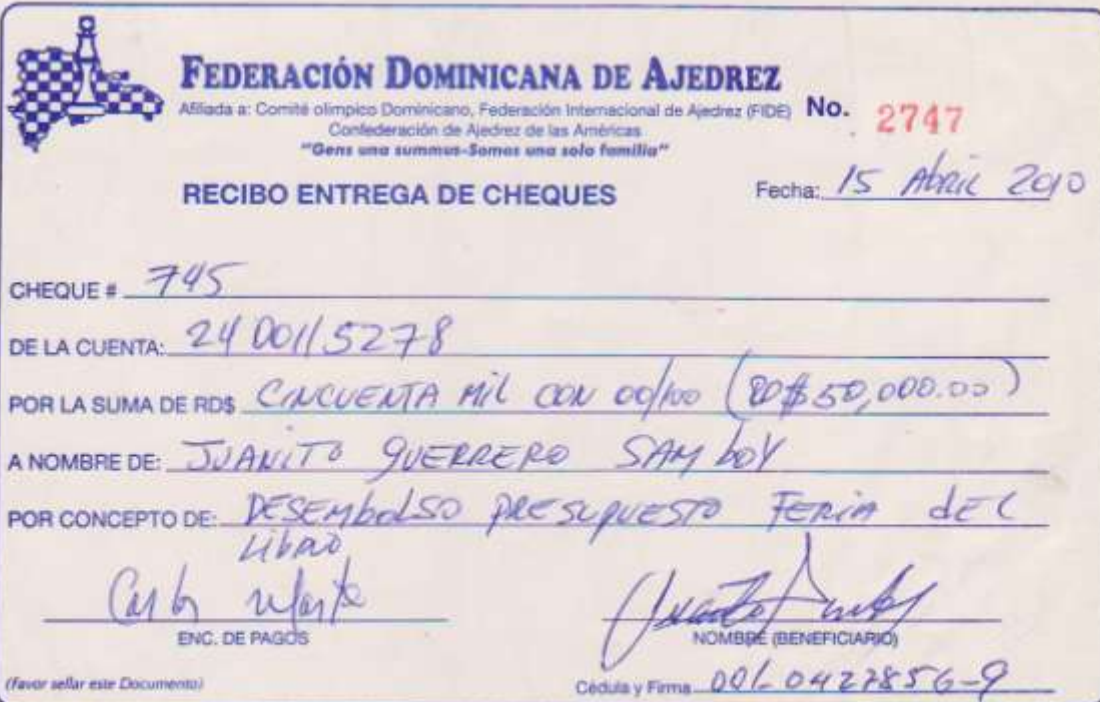 FEDERACIÓN DOMINICANA DE AJEDREZ
Afiliada a: Comité olímpico Dominicano, Federación Internacional de Ajedrez (FIDE)
No. 2747
Confederación de Ajedrez de las Américas
"Gens una summus-Somos una sola familia"
RECIBO ENTREGA DE CHEQUES
Fecha: 15 Abril 2010
CHEQUE # 745
DE LA CUENTA: 2400115278
POR LA SUMA DE RD$ CINCUENTA MIL CON 00/100 (RD$50,000.00)
A NOMBRE DE: JUANITO GUERRERO SAMBOY
POR CONCEPTO DE: DESEMBOLSO PRESUPUESTO FERIA DEL
LIBRO
ENC. DE PAGOS
NOMBRE (BENEFICIARIO)
(Favor sellar este Documento)
Cédula y Firma 001-0427856-9